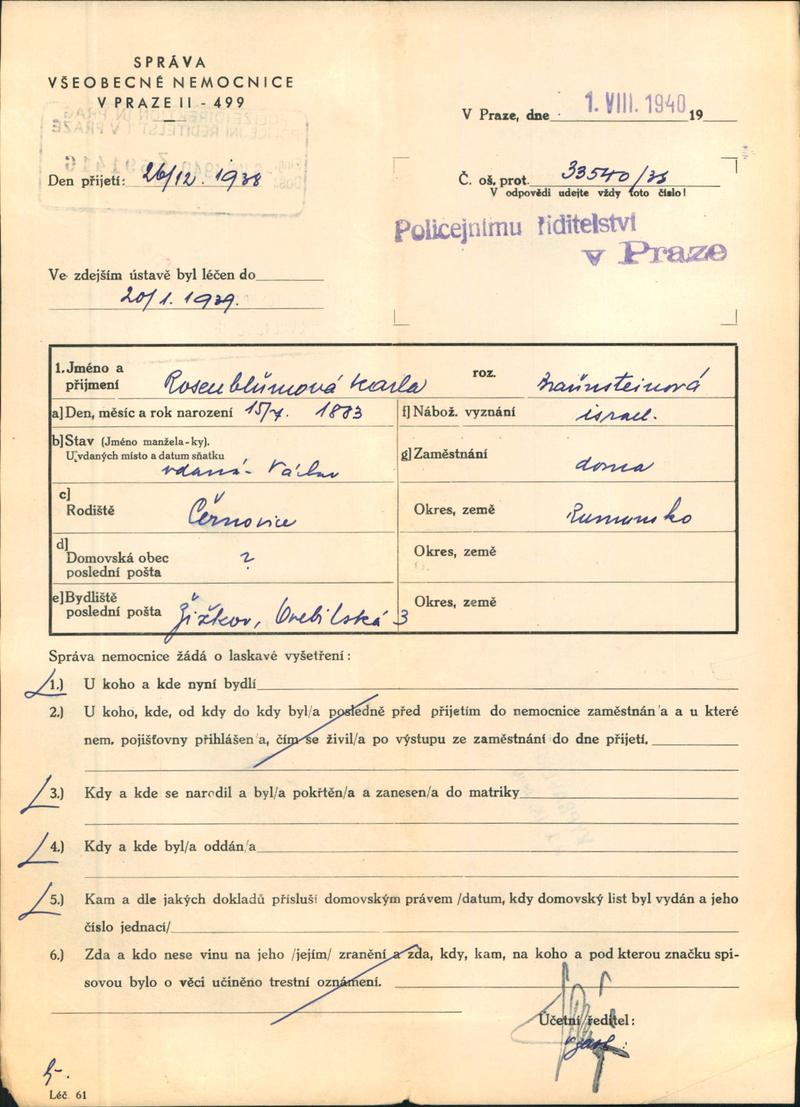 SPRÁVA
VŠEOBECNÉ NEMOCNICE
V PRAZE II - 499
V Praze, dne 1. VIII. 1940 19
Den přijetí: 26/12. 1938
Č. oš. prot. 33540/38
V odpovědi udejte vždy toto číslo!
Policejnímu ředitelství
v Praze
Ve zdejším ústavě byl léčen do
20/1. 1939.
1. Jméno a
přijmení Rosenblümová Karla roz. Braünsteinová
a] Den, měsíc a rok narození 15/7. 1883 f] Nábož. vyznání israel.
b] Stav (Jméno manžela-ky).
U vdaných místo a datum sňatku
vdaná - Václav g] Zaměstnání doma
c]
Rodiště Černovice Okres, země Rumunsko
d]
Domovská obec ? Okres, země
poslední pošta
e] Bydliště
poslední pošta Žižkov, Orebitská 3 Okres, země
Správa nemocnice žádá o laskavé vyšetření:
1.) U koho a kde nyní bydlí
2.) U koho, kde, od kdy do kdy byl/a posledně před přijetím do nemocnice zaměstnán/a a u které
nem. pojišťovny přihlášen/a, čím se živil/a po výstupu ze zaměstnání do dne přijetí.
3.) Kdy a kde se narodil a byl/a pokřtěn/a a zanesen/a do matriky
4.) Kdy a kde byl/a oddán/a
5.) Kam a dle jakých dokladů přísluší domovským právem /datum, kdy domovský list byl vydán a jeho
číslo jednací/
6.) Zda a kdo nese vinu na jeho /jejím/ zranění a zda, kdy, kam, na koho a pod kterou značku spi-
sovou bylo o věci učiněno trestní oznámení.
Účetní ředitel:
Léč. 61